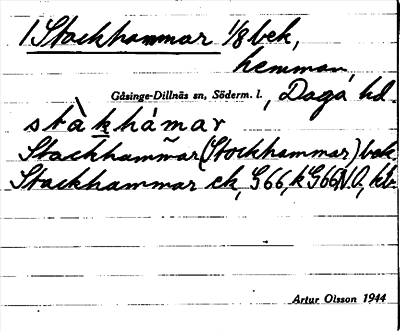 1 Stockhammar 1/8 bek,
hemman,
Gåsinge-Dillnäs sn, Söderm. l., Daga hd.
stàkhámar
Stockhammar (Stockhammar) bek.
Stockhammar ek, G66, k G66 N.O, kb.
Artur Olsson 1944